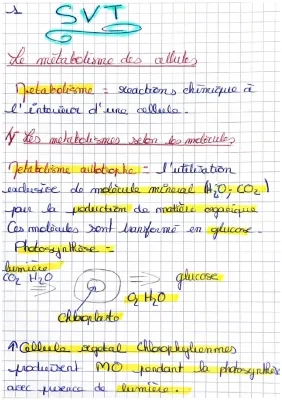 1
SVT
Le métabolisme des cellules
Métabolisme = réactions chimique à
l'intérieur d'une cellule.
Les métabolismes selon les molécules
Métabolisme autotrophe = l'utilisation
exclusive de molécule minéral (H2O; CO2)
par la production de matière organique
Ces molécules sont transformé en glucose.
Photosynthèse =
lumière
CO2 H2O
glucose
O2 H2O
Chloroplaste
Cellule végétal Chlorophyliennes
produisent MO pendant la photosynthèse
avec présence de lumière.